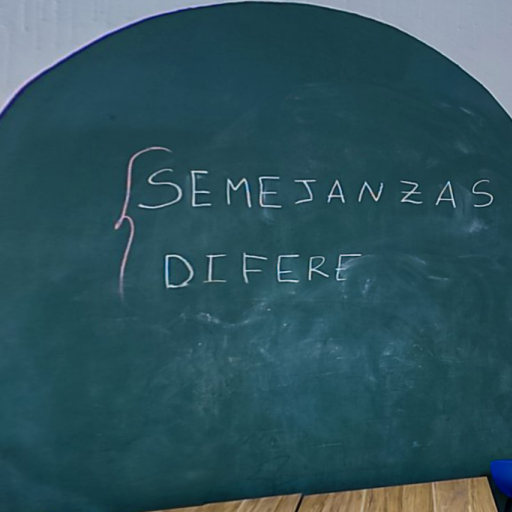 SEMEJANZAS
DIFERE